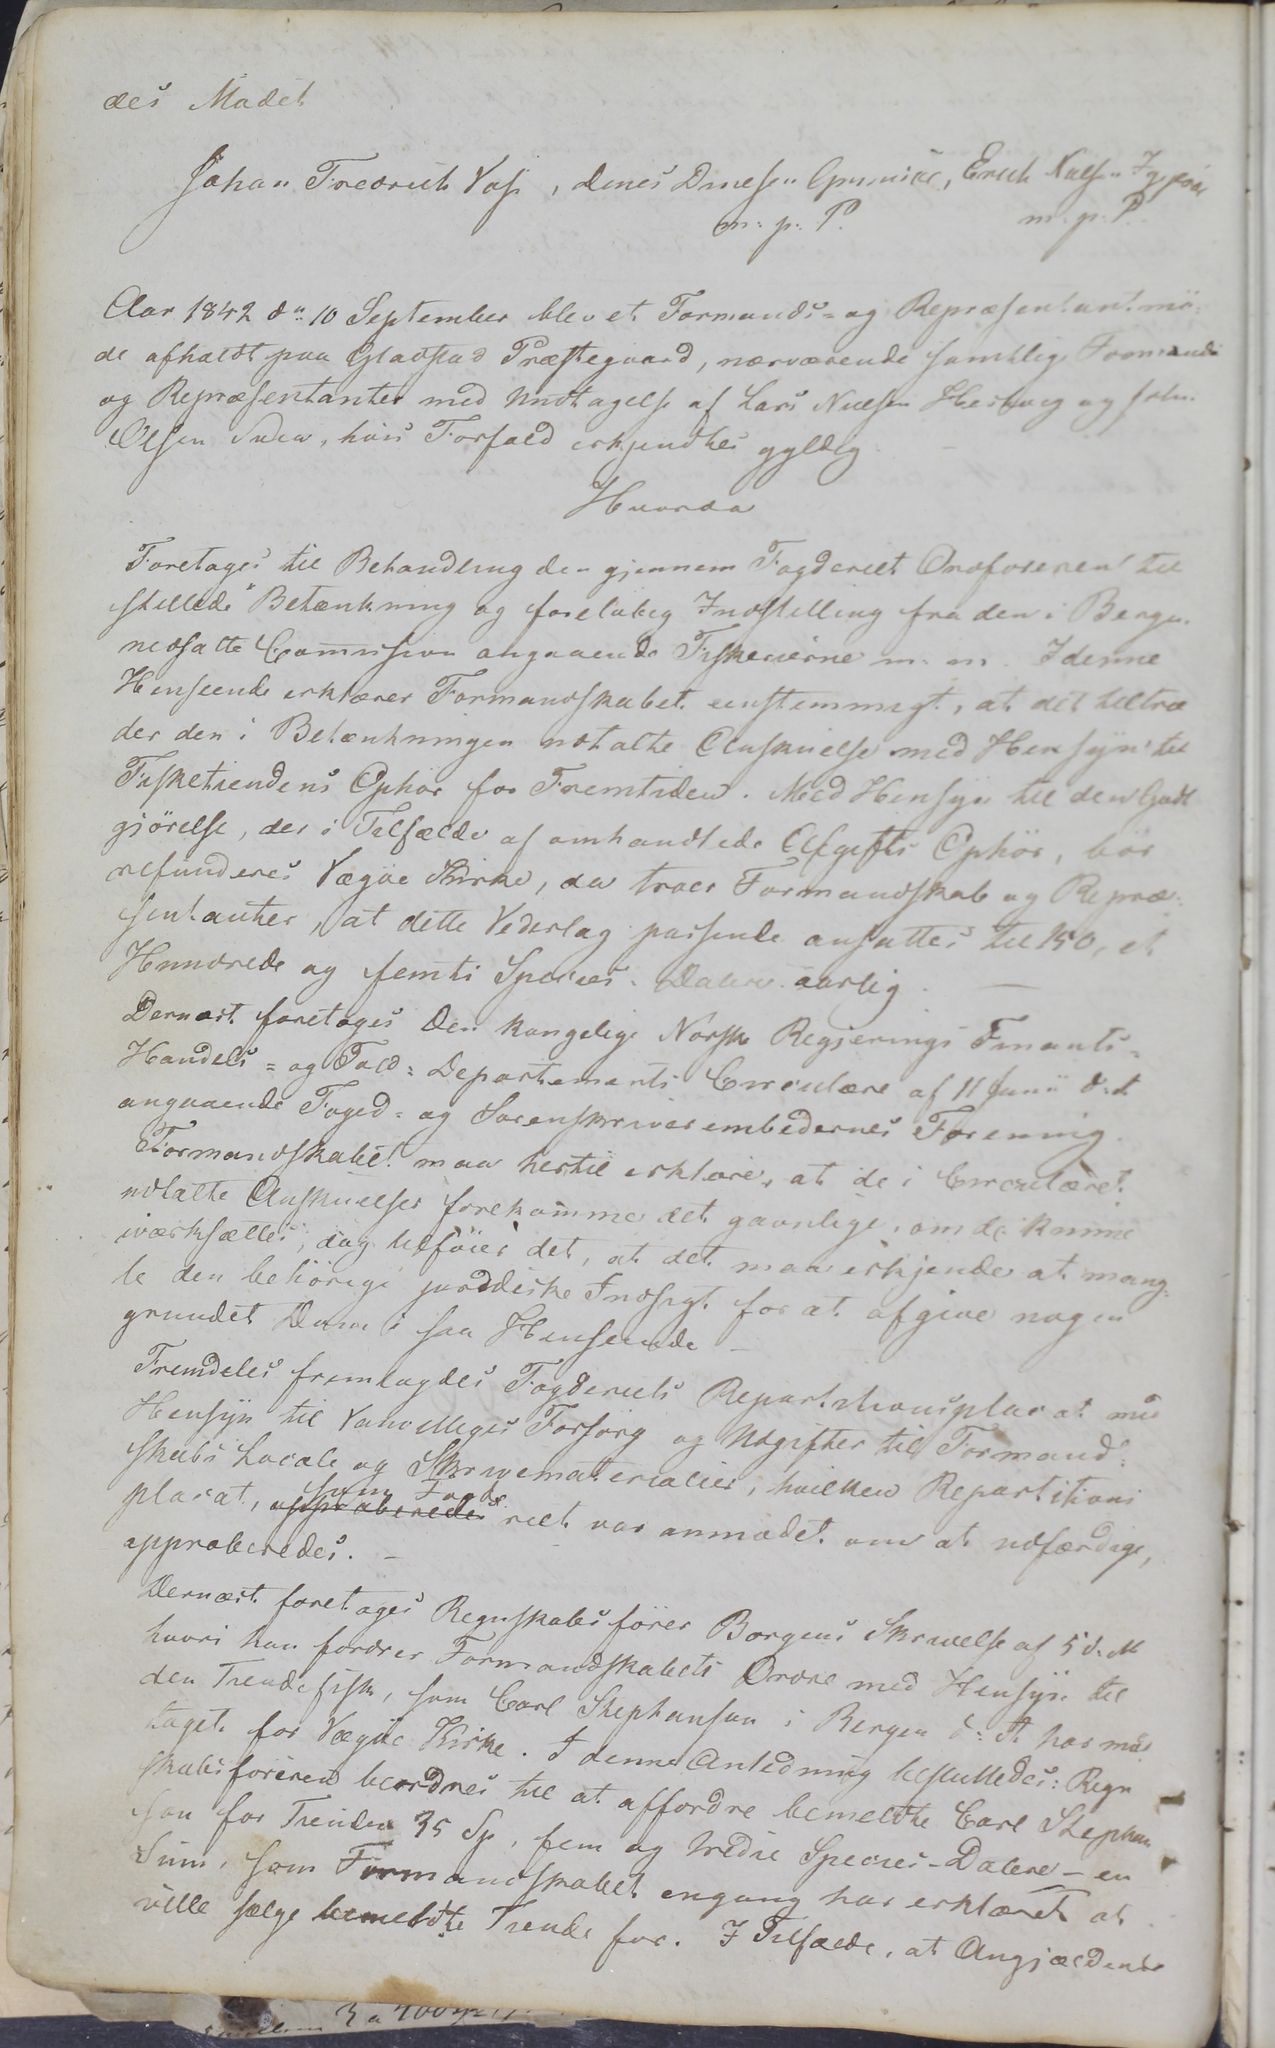 des Mødet
Johan Fredrich Vos, Enich Nilsen
m: p: P. m. p. P.
Aar 1842 dn 10 September blev et Formands- og Repræsentantmö-
de afholdt paa Gladstad Præstegaard, nærværende samtlige Formænd
og Repræsentanter med Undtagelse af Lars Nielsen og
Olsen, hvis Forfald erkjendtes gyldig
Hvorda
Foretoges til Behandling den gjennem Fogderiet Ordföreren til
stillede Betænkning og forelöbig Indstilling fra den i Bergen
nedsatte Commision angaaende Fiskerierne m. m. I denne
Henseende erklærer Formandskabet eenstemmigt, at det tiltræ
der den i Betænkningen udtalte Anskuelse med Hensyn til
Fisketiendens Ophör for Fremtiden. Med Hensyn til den Godt
gjörelse, der i Tilfælde af omhandlede Afgifts Ophör, bör
refunderes Vægöe Kirke, da troer Formandskab og Repræ-
sentanter, at dette Vederlag passende ansættes til 150, et
Hundrede og femti Species-Daler aarlig. —
Dernæst foretoges den kongelige Norske Regjerings Finants-
Handels- og Told-Departements Circulære af 11 Junii d. A
angaaende Foged- og Sorenskriverembedernes Forening.
Formandskabet maa hertil erklære, at de i Circulæret
udtalte Anskuelser forekomme det gavnlige, om de kunne
iværksættes, dog tilföier det, at det maa erkjende at mang-
le den behörige juridiske Indsigt for at afgive nogen
grundet Dom i saa Henseende —
Fremdeles fremlagdes Fogderiets Repartitionsplacat med
Hensyn til Vanvittiges Forsörg og Udgifter til Formand-
skabs Locale og Skrivematerialier, hvilken Repartitions
placat, approberedes som Fogde
riet var anmodet om at udfærdige,
approberedes. —
Dernæst foretoges Regnskabsförer Borgens Skrivelse af 5 d. M
hvori han fordrer Formandskabets Ordre med Hensyn til
den Tiendefisk, som Carl Stephansen i Bergen d: A. har mod
taget for Vægöe Kirke. I denne Anledning besluttedes: Regn
skabsföreren beordres til at affordre bemeldte Carl Stephan
sen for Tienden 35 Sp, fem og tredive Species-Daler — en
Sum, som Formandskabet engang har erklæret at
ville sælge bemeldte Tiende for. I Tilfælde, at Angjældende